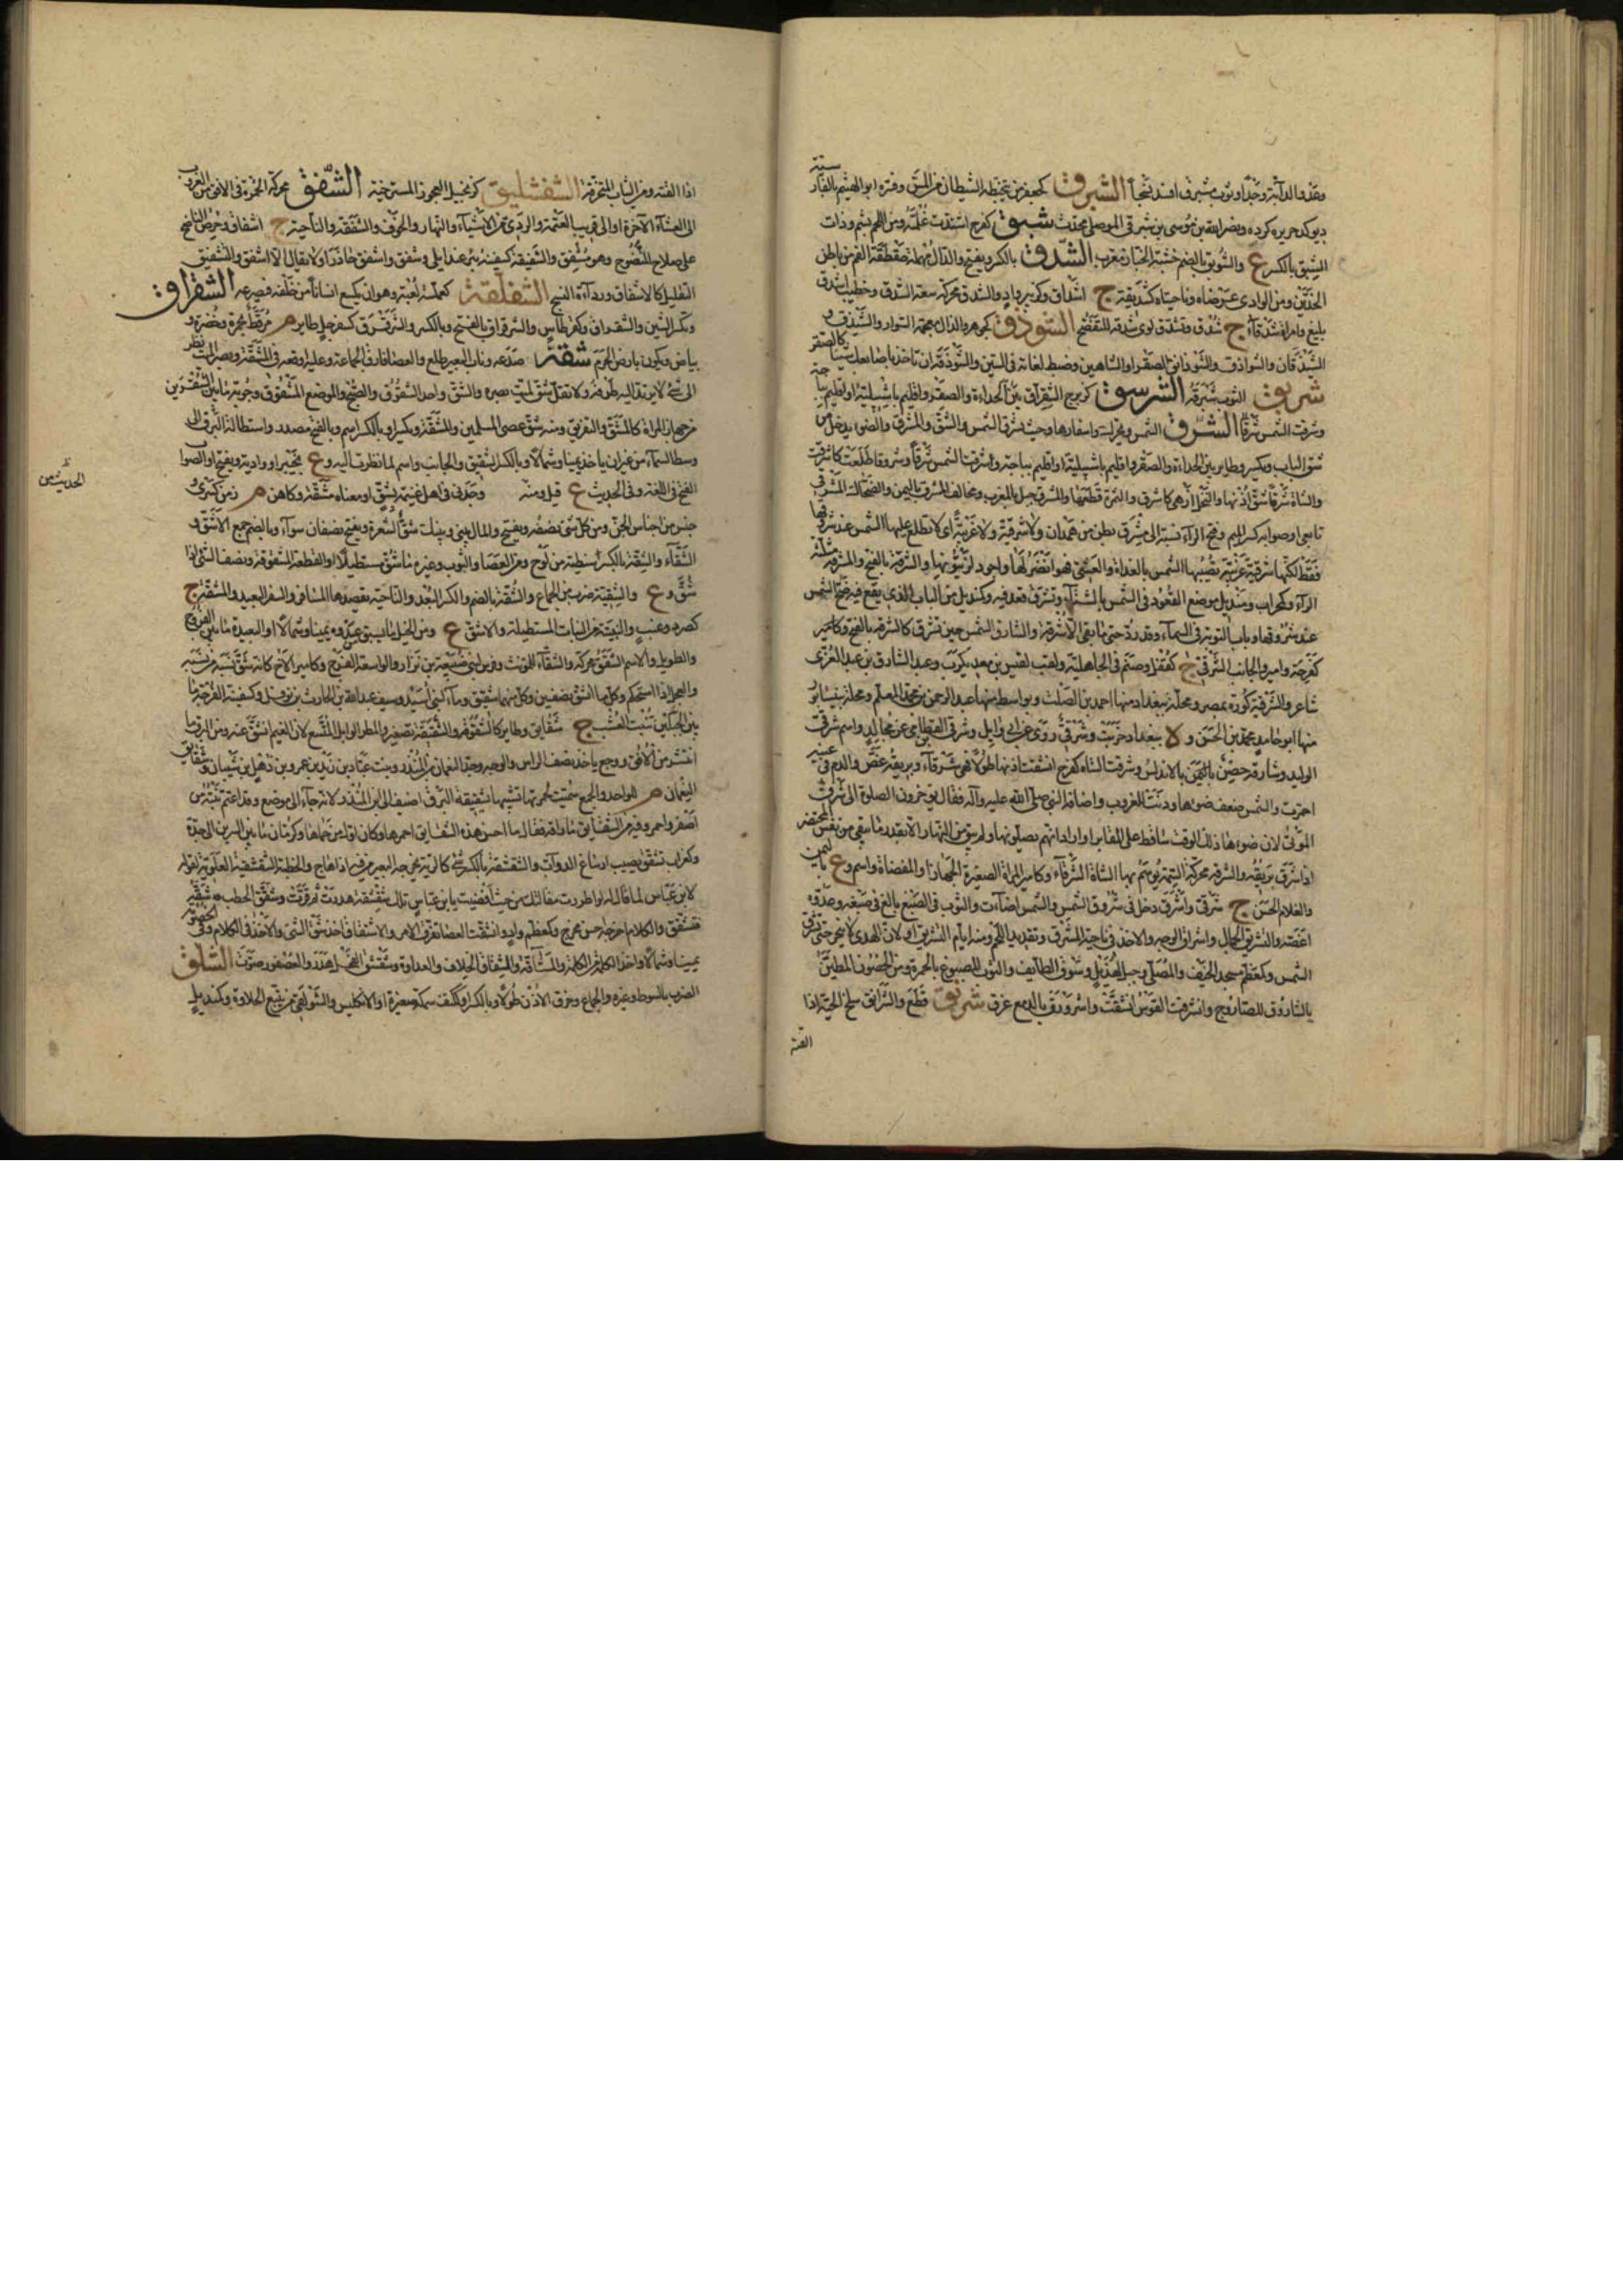 وعدو الدابة وخدا وثوب مشبرق افسد نسجا الشبرق كجعفر من يتخبطه الشيطان من المس وفسره ابو الهيثم بالفارسية
ديوكد خريده كرده ونصر الله بن موسى بن شبرق الموصلي محدث شبق كفرح اشتدت غلمته ومن اللحم بشم وذات
الشبق بالكسر ع والشوبق بالضم خشبة الخباز معرب الشدق بالكسر ويفتح والدال مهملة طفطفة الفم من باطن
الخدين ومن الوادي عرضاه وناحيتاه كشديقه ج اشداق وكزبير واد والشدق محركة سعة الشدق وخطيب اشدق
بليغ وامراة شدقاء ج شدق وتشدق لوى شدقه للتفصح الشوذق كجوهر والذال معجمة السوار والشيذق و
الشيذقان والشواذق والشوذانق الصقر او الشاهين وضبط لغاته في السين والشوذقة ان تاخذ باصابعك شيئا كالصقر
شربق الثوب شبرقه الشرسق كزبرج الشقراق
وشرقت الشمس شرقا الشرق الشمس ويحرك واسفارها وحيث تشرق الشمس والشق والمشرق والضوء يدخل من
شق الباب ويكسر وطاير بين الحداءة والصقر واقليم باشبيلية او اقليم بباجة وشرقت الشمس شرقا وشروقا طلعت كاشرقت
والشاة شرقا شق اذنها والنخل ازهى كاشرق والثمرة قطعها والمشرق جبل بالمغرب ومخلاف المشرق باليمن والضحاك المشرقي
تابعي او صوابه كسر الميم وفتح الراء نسبة الى مشرق بطن من همدان ولا شرقية ولا غربية اي لا تطلع عليها الشمس عند شروقها
فقط لكنها شرقية غربية تصيبها الشمس بالغداة والعشي فهو انضر لها واجود لزيتونها والشرقة بالفتح والمشرقة مثلثة
الراء وكمحراب ومنديل موضع القعود في الشمس بالشتاء وتشرق قعد فيه وكمنديل من الباب الذي يقع فيه ضح الشمس
عند شروقها وباب التوبة في السماء وقد رد حتى ما بقي الا شرقه والشارق الشمس حين تشرق كالشرقة بالفتح وكامير
كفرحة وامير والجانب الشرقي ج كقفل وصنم في الجاهلية ولقب لقيس بن معديكرب وعبد الشارق بن عبد العزى
شاعر والشرقية كورة بمصر ومحلة ببغداد منها احمد بن الصلت وبواسط منها عبد الرحمن بن محمد المعلم ومحلة بنيسابور
منها ابو حامد محمد بن الحسن و ة ببغداد خربت وشرقي روى عن ابي وايل وشرقي القطامي عن مجالد واسم شرقي
الوليد وشارقة حصن بالاندلس وشرقت الشاة كفرح انشقت اذنها طولا فهي شرقاء وبريقه غص والدم في عينيه
احمرت والشمس ضعف ضوءها ودنت للغروب واضافه النبي صلى الله عليه وآله فقال يؤخرون الصلوة الى شرق
الموتى لان ضوءها ذلك الوقت ساقط على المقابر او اراد انهم يصلونها ولم يبق من النهار الا بقدر ما بقي من نفس المحتضر
اذا شرق بريقه والشرقة محركة السمة يوسم بها الشاة الشرقاء وكامير المراة الصغيرة الجهاز او المفضاة واسم وع باليمن
والغلام الحسن ج شرق واشرق دخل في شروق الشمس والشمس اضاءت والثوب في الصبغ بالغ في صبغه وعدوه
اغصه والتشريق الجمال واشراق الوجه والاخذ في ناحية المشرق وتقديد اللحم ومنه ايام التشريق او لان الهدي لا ينحر حتى تشرق
الشمس وكمعظم مسجد الخيف والمصلى وجبل لهذيل وسوق الطايف والثوب المصبوغ بالحمرة ومن الحصون المطين
بالشاروق للصاروج وانشرقت القوس انشقت واشرورق بالدمع غرق شربق قطع والشرانق سلخ الحية اذا
القته
اذا القته ومن الثياب المتخرقة الشفشليق كزنجبيل العجوز المسترخية الشفق محركة الحمرة في الافق من الغروب
الى العشاء الآخرة او الى قريب العتمة والردي من الاشياء والنهار والخوف والشفقة والناحية ج اشفاق وحرص الناصح
على صلاح المنصوح وهو مشفق والشفيقة كسفينة بئر عند ابلى وشفق واشفق حاذر او لا يقال الا اشفق والتشفيق
التقليل كالاشفاق ورداءة النسج الشفلقة كعملسة لعبة وهو ان يكسع انسانا من خلفه فيصرعه الشقراق
وتكسر الشين والشقراق كقرطاس والشرقراق بالفتح وبالكسر والشرقرق كسفرجل طاير م مرقط بحمرة وخضرة و
بياض ويكون بارض الحرم شقه صدعه وناب البعير طلع والعصا فارق الجماعة وعليه اوقعه في المشقة وبصر الميت نظر
الى شيء لا يرتد اليه طرفه ولا تقل شق الميت بصره والشق واحد الشقوق والصبح والموضع المشقوق وجوبة ما بين الشفرين
من جهاز المراة كالمشق والتفريق ومنه شق عصى المسلمين والمشقة ويكسر او بالكسر اسم وبالفتح مصدر واستطالة البرق الى
وسط السماء من غير ان ياخذ يمينا وشمالا وبالكسر الشقيق والجانب واسم لما نظرت اليه وع بخيبر او واد به ويفتح او الصواب
الفتح في اللغة وفي الحديث ع قيل ومنه وجدني في اهل غنيمة بشق او معناه مشقة وكاهن م زمن كسرى و
الحديث من
جنس من اجناس الجن ومن كل شيء نصفه ويفتح والمال بيني وبينك شق الشعرة ويفتح نصفان سواء وبالضم جمع الاشق و
الشقاء والشقة بالكسر شظية من لوح ومن العصا والثوب وغيره ما شق مستطيلا او القطعة المشقوقة ونصف الشيء اذا
شق وع والشقية ضرب من الجماع والشقة بالضم والكسر البعد والناحية يقصدها المسافر والسفر البعيد والمشقة ج
كصرد وعنب والسبيبة من الثياب المستطيلة والاشق ع ومن الخيل ما يشتق في عدوه يمينا وشمالا او البعيد ما بين الفروج
والطويل والاسم الشقق محركة والشقاء للمؤنث وفرس لبني ضبيعة بن نزار والواسعة الفرج وكامير الاخ كانه شق نسبه من نسبه
والعجل اذا استحكم وكل ما انشق بنصفين وكل منهما شقيق وماء لبني اسيد وسيف عبد الله بن الحارث بن نوفل وكسفينة الفرجة ما
بين الجبلين تنبت العشب ج شقايق وطاير كالشقوقة والشقيقة تصغيره والمطر الوابل المتسع لان الغيم انشق عنه ومن البرق ما
انتشر من الافق ووجع ياخذ نصف الراس والوجه وجدة النعمان بن المنذر وبنت عباد بن زيد بن عمرو بن ذهل بن شيبان وشقايق
النعمان م للواحد والجمع سميت لحمرتها تشبيها بشقيقة البرق اضيف الى ابن المنذر لانه جاء الى موضع وقد اعتم نبته من
اصفر واحمر وفيه من الشقايق ما راقه فقال ما احسن هذه الشقايق احموها وكان اول من حماها وكرمان ما بين السرين الى جدة
وكغراب تشقق يصيب ارساغ الدواب والشقشقة بالكسر شيء كالرئة يخرجه البعير من فيه اذا هاج والخطبة الشقشقية العلوية لقوله
لابن عباس لما قال له لو اطردت مقالتك من حيث افضيت يا ابن عباس تلك شقشقة هدرت ثم قرت وشقق الحطب شقه
فتشقق والكلام اخرجه احسن مخرج وكمعظم واد وانشقت العصا تفرق الامر والاشتقاق اخذ شق الشيء والاخذ في الكلام وفي الخصومة
يمينا وشمالا واخذ الكلمة من الكلمة والمشاقة والشقاق الخلاف والعداوة وشقشق الفحل هدر والعصفور صوت الشلق
الضرب بالسوط وغيره والجماع وخرق الاذن طولا وبالكسر او ككتف سمكة صغيرة او الانكليس والشولقي من يتتبع الحلاوة وكمنديل